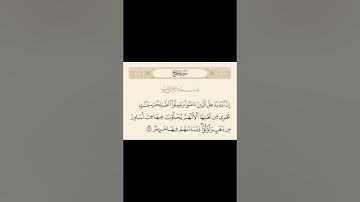 سورة الحج
بسم الله الرحمن الرحيم
إِنَّ ٱللَّهَ يُدْخِلُ ٱلَّذِينَ ءَامَنُوا۟ وَعَمِلُوا۟ ٱلصَّـٰلِحَـٰتِ جَنَّـٰتٍ
تَجْرِى مِن تَحْتِهَا ٱلْأَنْهَـٰرُ يُحَلَّوْنَ فِيهَا مِنْ أَسَاوِرَ
مِن ذَهَبٍ وَلُؤْلُؤًا وَلِبَاسُهُمْ فِيهَا حَرِيرٌ